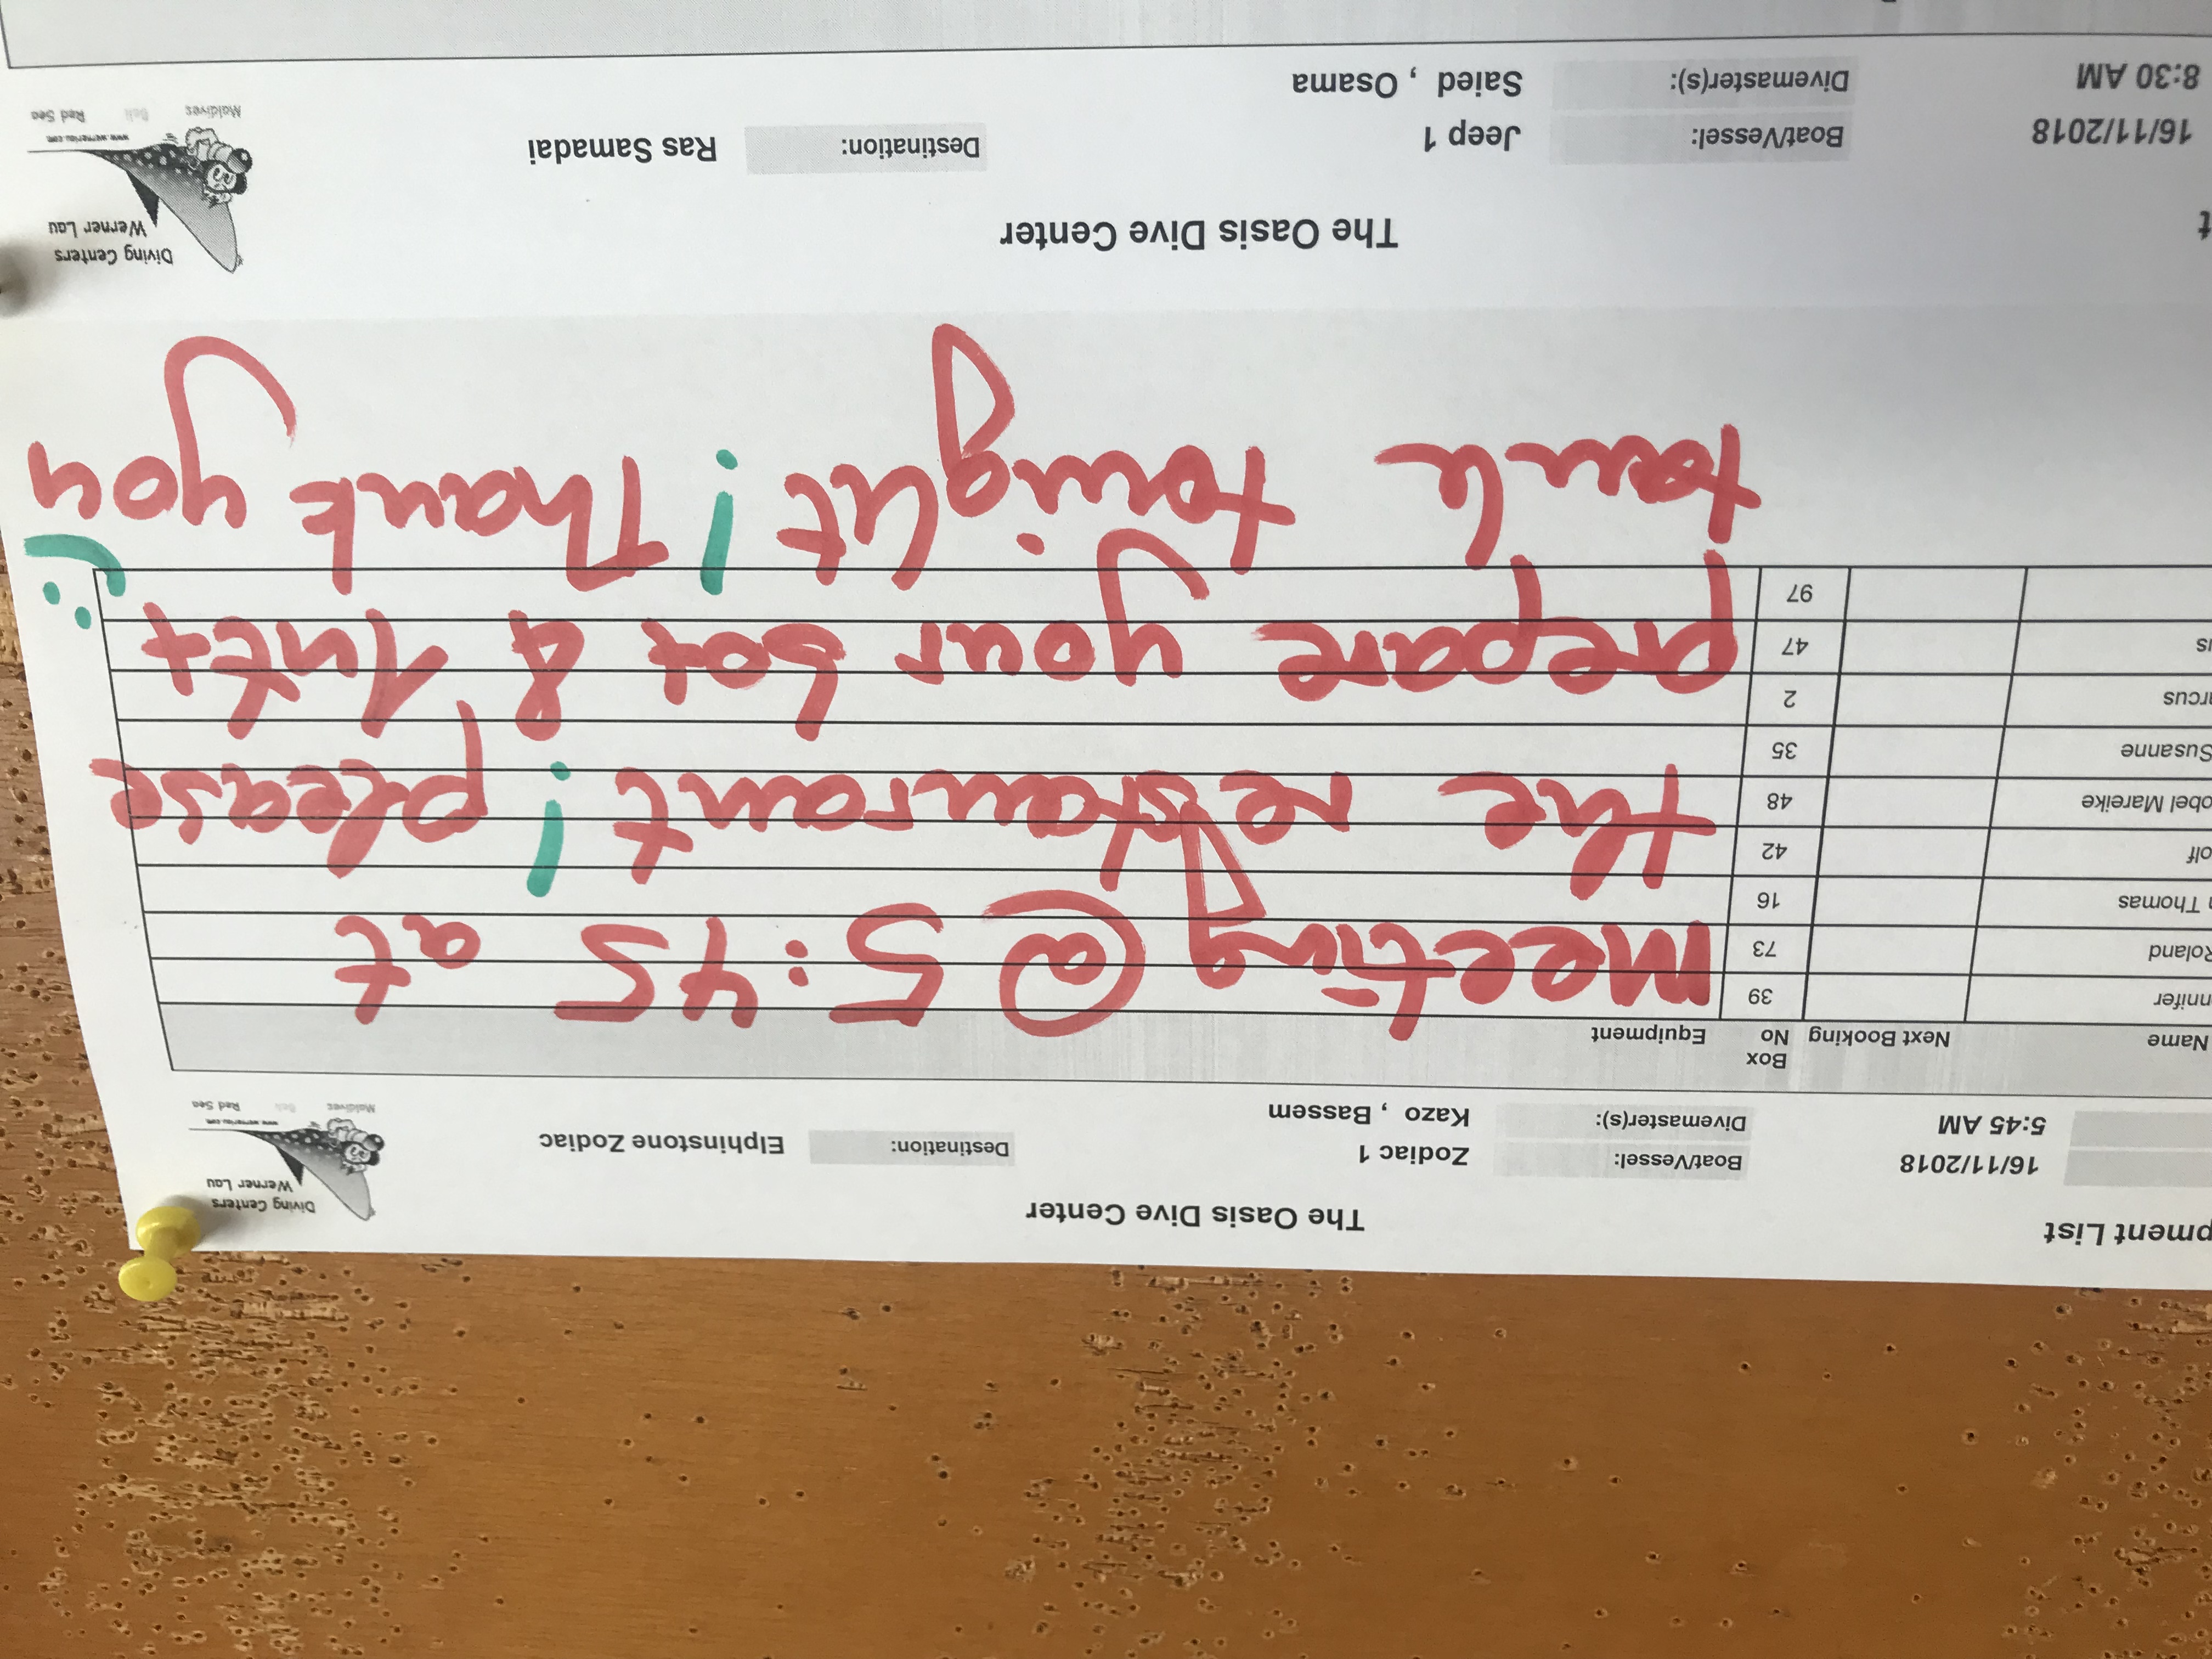 pment List
The Oasis Dive Center
Diving Centers
Werner Lau
www.wernerlau.com
Maldives Bali Red Sea
16/11/2018 Boat/Vessel: Zodiac 1 Destination: Elphinstone Zodiac
5:45 AM Divemaster(s): Kazo , Bassem
Name Next Booking Box No Equipment
nnifer 39
Roland 73
Thomas 16
olf 42
obel Mareike 48
Susanne 35
rcus 2
is 47
97
Meeting @ 5:45 at
the restaurant ! please
prepare your box & 1 Nitex
tank tonight ! Thank you
:)
t
The Oasis Dive Center
Diving Centers
Werner Lau
www.wernerlau.com
Maldives Bali Red Sea
16/11/2018 Boat/Vessel: Jeep 1 Destination: Ras Samadai
8:30 AM Divemaster(s): Saied , Osama